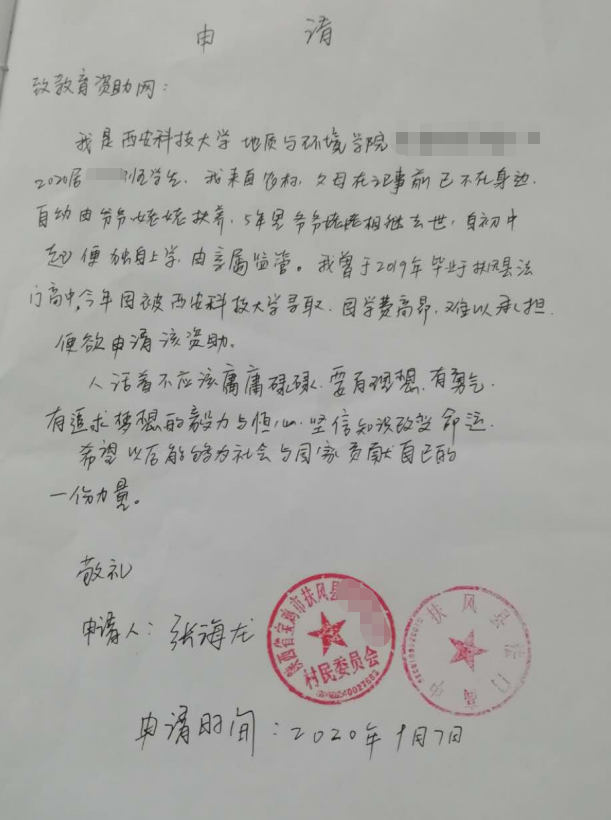 申 请
致教育资助网:
我是西安科技大学 地质与环境学院
2020届 班学生. 我来自农村, 父母在记事前已不在身边.
自幼由爷爷姥姥扶养. 5年里爷爷姥姥相继去世, 自初中
起便独自上学, 由亲属监管。我曾于2019年毕业于扶风县法
门高中,今年因被西安科技大学录取. 因学费高昂, 难以承担.
便欲申请该资助。
人活着不应该庸庸碌碌. 要有理想. 有勇气.
有追求梦想的毅力与恒心. 坚信知识改变命运.
希望以后能够为社会与国家贡献自己的
一份力量。
敬礼
申请人: 张海龙
陕西省宝鸡市扶风县
村民委员会
扶风县法门高中
申请时间: 2020年9月7日